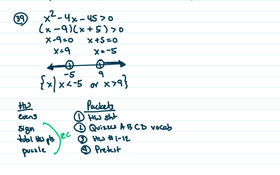 39 x² - 4x - 45 > 0
(x - 9)(x + 5) > 0
x - 9 = 0 x + 5 = 0
x = 9 x = -5
-5 9
{x | x < -5 or x > 9}
HW Packets
evens ① HW sht
sign ② Quizzes A B C D vocab
total HW pts ③ HW #1-12
puzzle ④ Pretest
EC